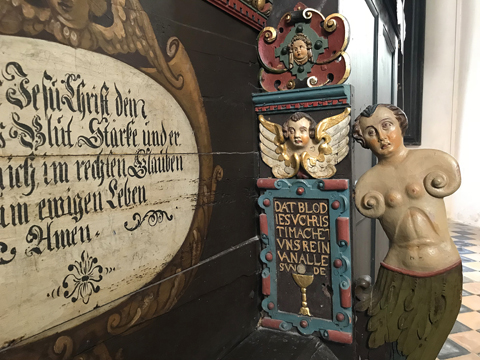 Jesu Christ dem
Blut Starke und er
ich im rechten Glauben
um ewigen Leben
Amen.
DAT BLOD
IESV CHRIS
TI MACHET
VNS REIN
VAN ALLE
SVNDE